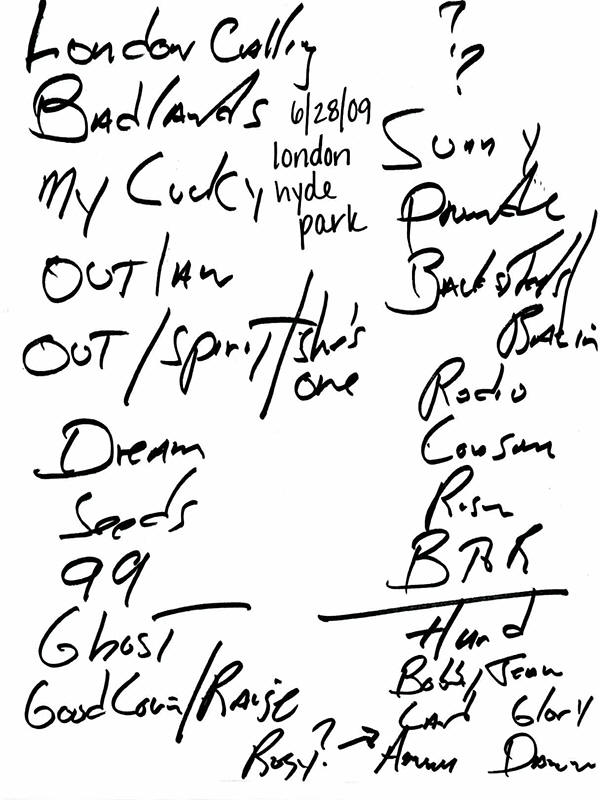 London Calling
Badlands
6/28/09
london
hyde
park
My Lucky
OUTlaw
OUT/Spirit/She's
one
Dream
Seeds
99
Ghost
Good Lovin/Raise
?
?
Sunny
Promise
Backstreets/
Radio
Lonesome
Risin
BTR
Hard
Bobby/Jean
Card Glory
Rosy? → Amer Dancin